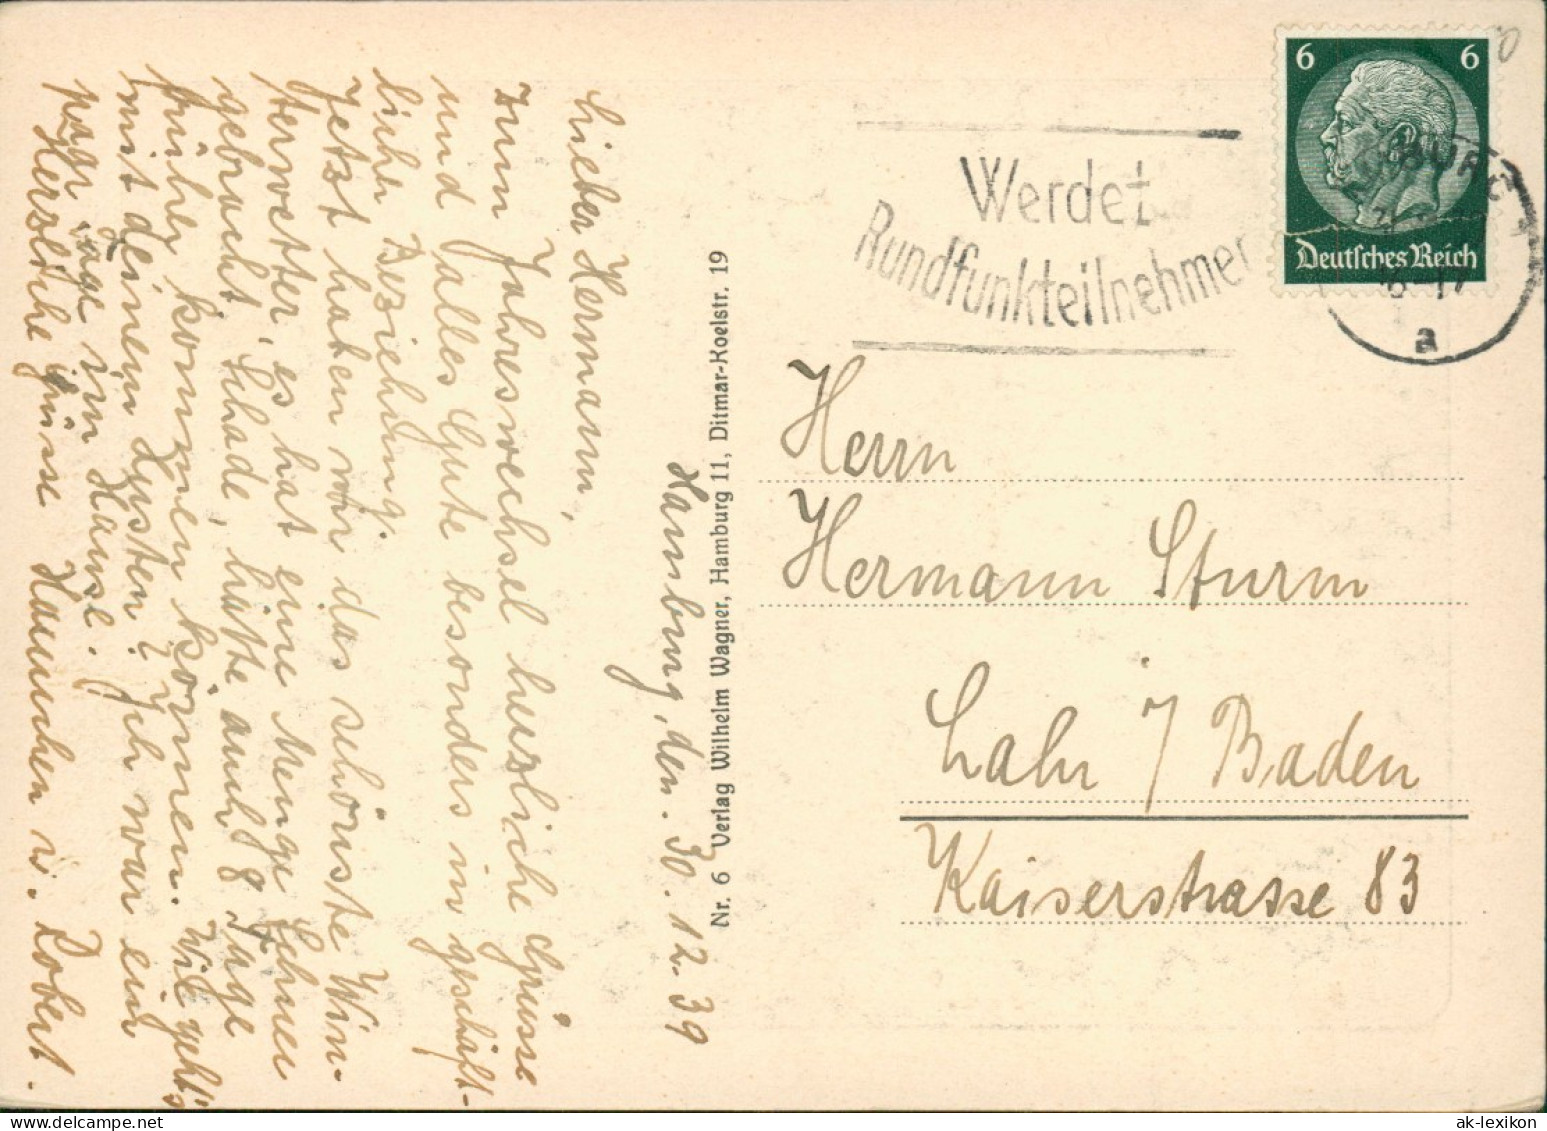 Hamburg, den. 30. 12. 39
Lieber Hermann,
Zum Jahreswechsel herzliche Grüsse
und alles Gute besonders in geschäft-
licher Beziehung.
Jetzt haben wir das schönste Win-
terwetter, es hat eine Menge Schnee
gebracht. Schade, hätte auch 8 Tage
früher kommen können. Wie geht's
mit deinem Husten? Ich war ein
paar Tage im Hause.
Herzliche Grüsse Hannchen u. Robert.
Nr. 6 Verlag Wilhelm Wagner, Hamburg 11, Ditmar-Koelstr. 19
Werdet
Rundfunkteilnehmer
6 6
Deutsches Reich
a
Herrn
Hermann Sturm
Lahr i/ Baden
Kaiserstrasse 83
ak-lexikon